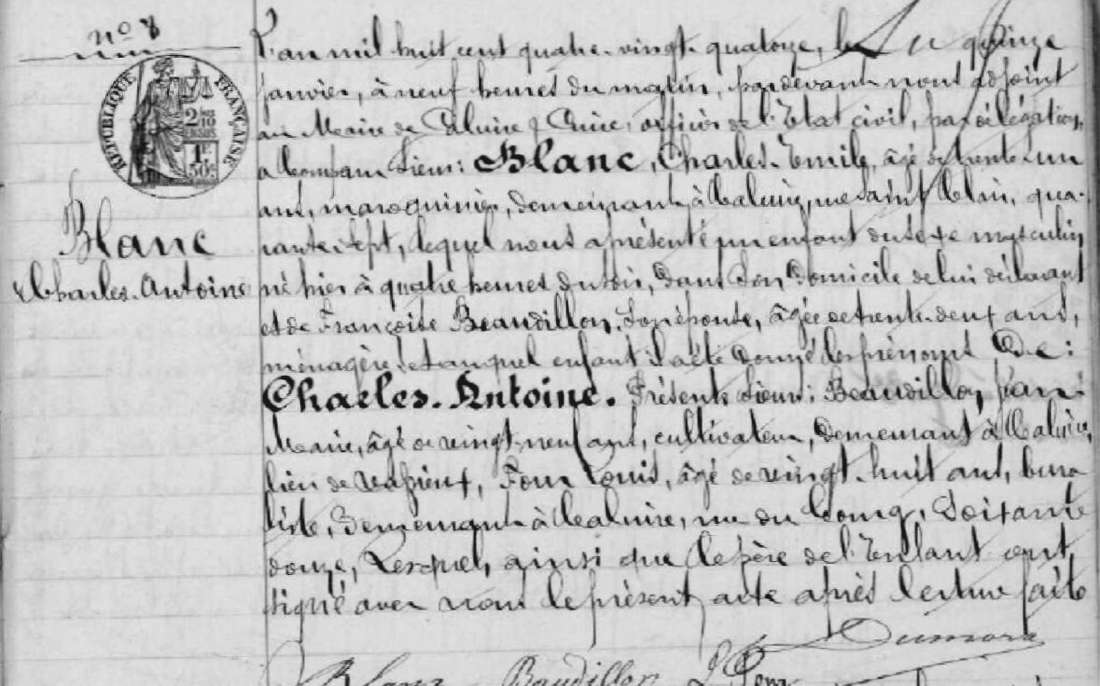 n° 8
RÉPUBLIQUE FRANÇAISE
2/10 EN SUS
1F 50c
Blanc
Charles-Antoine
L'an mil huit cent quatre-vingt-quatorze, le quinze
janvier, à neuf heures du matin, pardevant nous adjoint
au Maire de Caluire & Cuire, officier de l'État civil, par délégation,
a comparu Sieur: Blanc, Charles-Emile, âgé de trente-un
ans, maroquinier, demeurant à Caluire, rue Saint Clair, qua-
rante sept, lequel nous a présenté un enfant du sexe masculin
né hier à quatre heures du soir, dans son domicile de lui déclarant
et de Françoise Beaudillon, son épouse, âgée de trente-deux ans,
ménagère, et auquel enfant il a été donné les prénoms de:
Charles-Antoine. Présents Sieurs: Beaudillon, Jean-
Marie, âgé de vingt-neuf ans, cultivateur, demeurant à Caluire,
lieu de, Louis, âgé de vingt-huit ans, bura-
liste, demeurant à Caluire, rue du bourg, soixante
douze, Lesquels, ainsi que le père de l'Enfant ont
signé avec nous le présent acte après lecture faite
Dumora
Blanc Baudillon